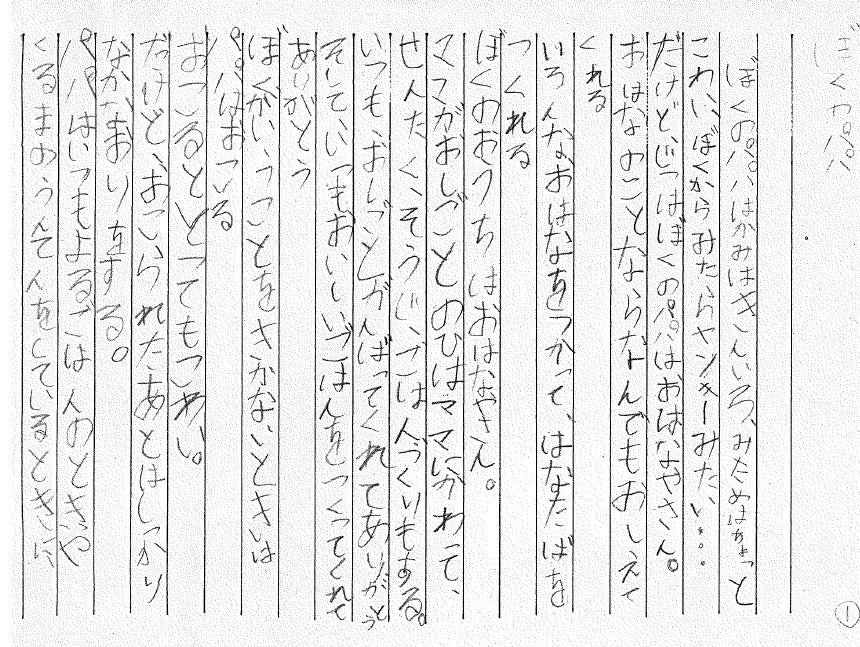 ぼくのパパ
ぼくのパパはかみはきんいろ、みためはちょっと
こわい、ぼくからみたらヤンキーみたい・・・
だけど、じつはぼくのパパは、おはなやさん。
おはなのことならなんでもおしえて
くれる
いろんなおはなをつかって、はなたばを
つくれる
ぼくのおうちはおはなやさん。
ママがおしごとのひはママにかわって、
せんたく、そうじ、ごはんづくりもする。
いつも、おしごとがんばってくれてありがとう
そして、いつもおいしいごはんをつくってくれて
ありがとう
ぼくがいうことをきかないときは
パパはおこる
おこるととってもこわい。
だけど、おこられたあとはしっかり
なかなおりをする。
パパはいつもよるごはんのときや
くるまのうんてんをしているときに
①